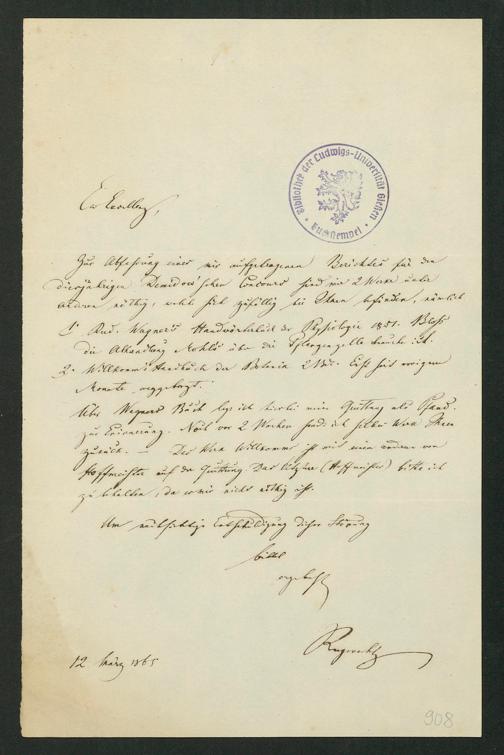 Bibliothek der Ludwigs-Universität Gießen
Buchstempel
Ew Excellenz,
Zur Abfassung eines mir aufgetragenen Berichtes für den
diesjährigen Demidow'schen Concours sind mir 2 Werke unter
anderen nöthig, welche sich zufällig bei Ihnen befinden, nämlich
1° Rud. Wagner's Handwörterbuch der Physiologie 1851. Bloss
die Abhandlung Mohl's über die Pflanzenzelle brauche ich.
2° Willkomm's Handbuch der Botanik 2 Bde. Erst seit einigem
Monate
Über Wagners Buch lege ich hierbei meine Quittung als Pfand
zur Erinnerung. Nach 2 Wochen sende ich selbes Werk Ihnen
zurück. — Das Werk Willkomm ist mit einem anderen von
Hofmeister auf der Quittung. Das letztere (Hoffmeister) bitte ich
zu behalten, da es mir nicht nöthig ist.
Um nachsichtige Entschuldigung dieser Störung
bittet
ergebenst
Ruprecht
12 März 1865
908